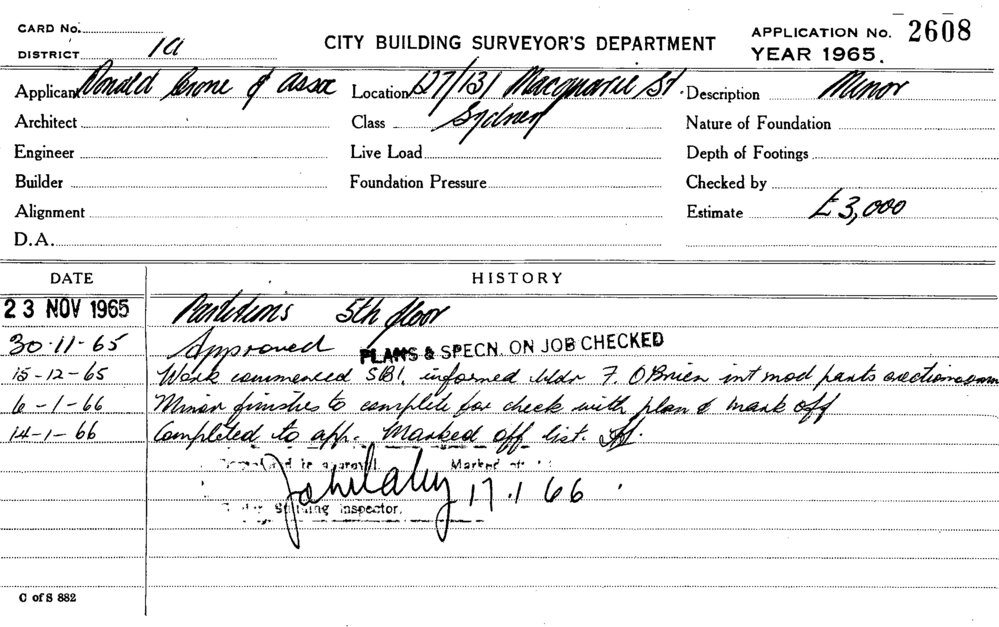 CARD No.
CITY BUILDING SURVEYOR'S DEPARTMENT
APPLICATION No. 2608
DISTRICT 1a
YEAR 1965.
Applicant Donald Crone & Assc
Location 127/131 Macquarie St.
Sydney
Description Minor
Architect
Class
Nature of Foundation
Engineer
Live Load
Depth of Footings
Builder
Foundation Pressure
Checked by
Alignment
Estimate £3,000
D.A.
DATE HISTORY
23 NOV 1965 Partitions 5th floor
30-11-65 Approved PLANS & SPECN. ON JOB CHECKED
15-12-65 Work commenced SBI, informed bldr F. O'Brien int mod parts erection
6-1-66 Minor finishes to complete for check with plan & mark off
14-1-66 Completed to app. Marked off list.
approval. Marked
17.1.66
Building Inspector.
C of S 882